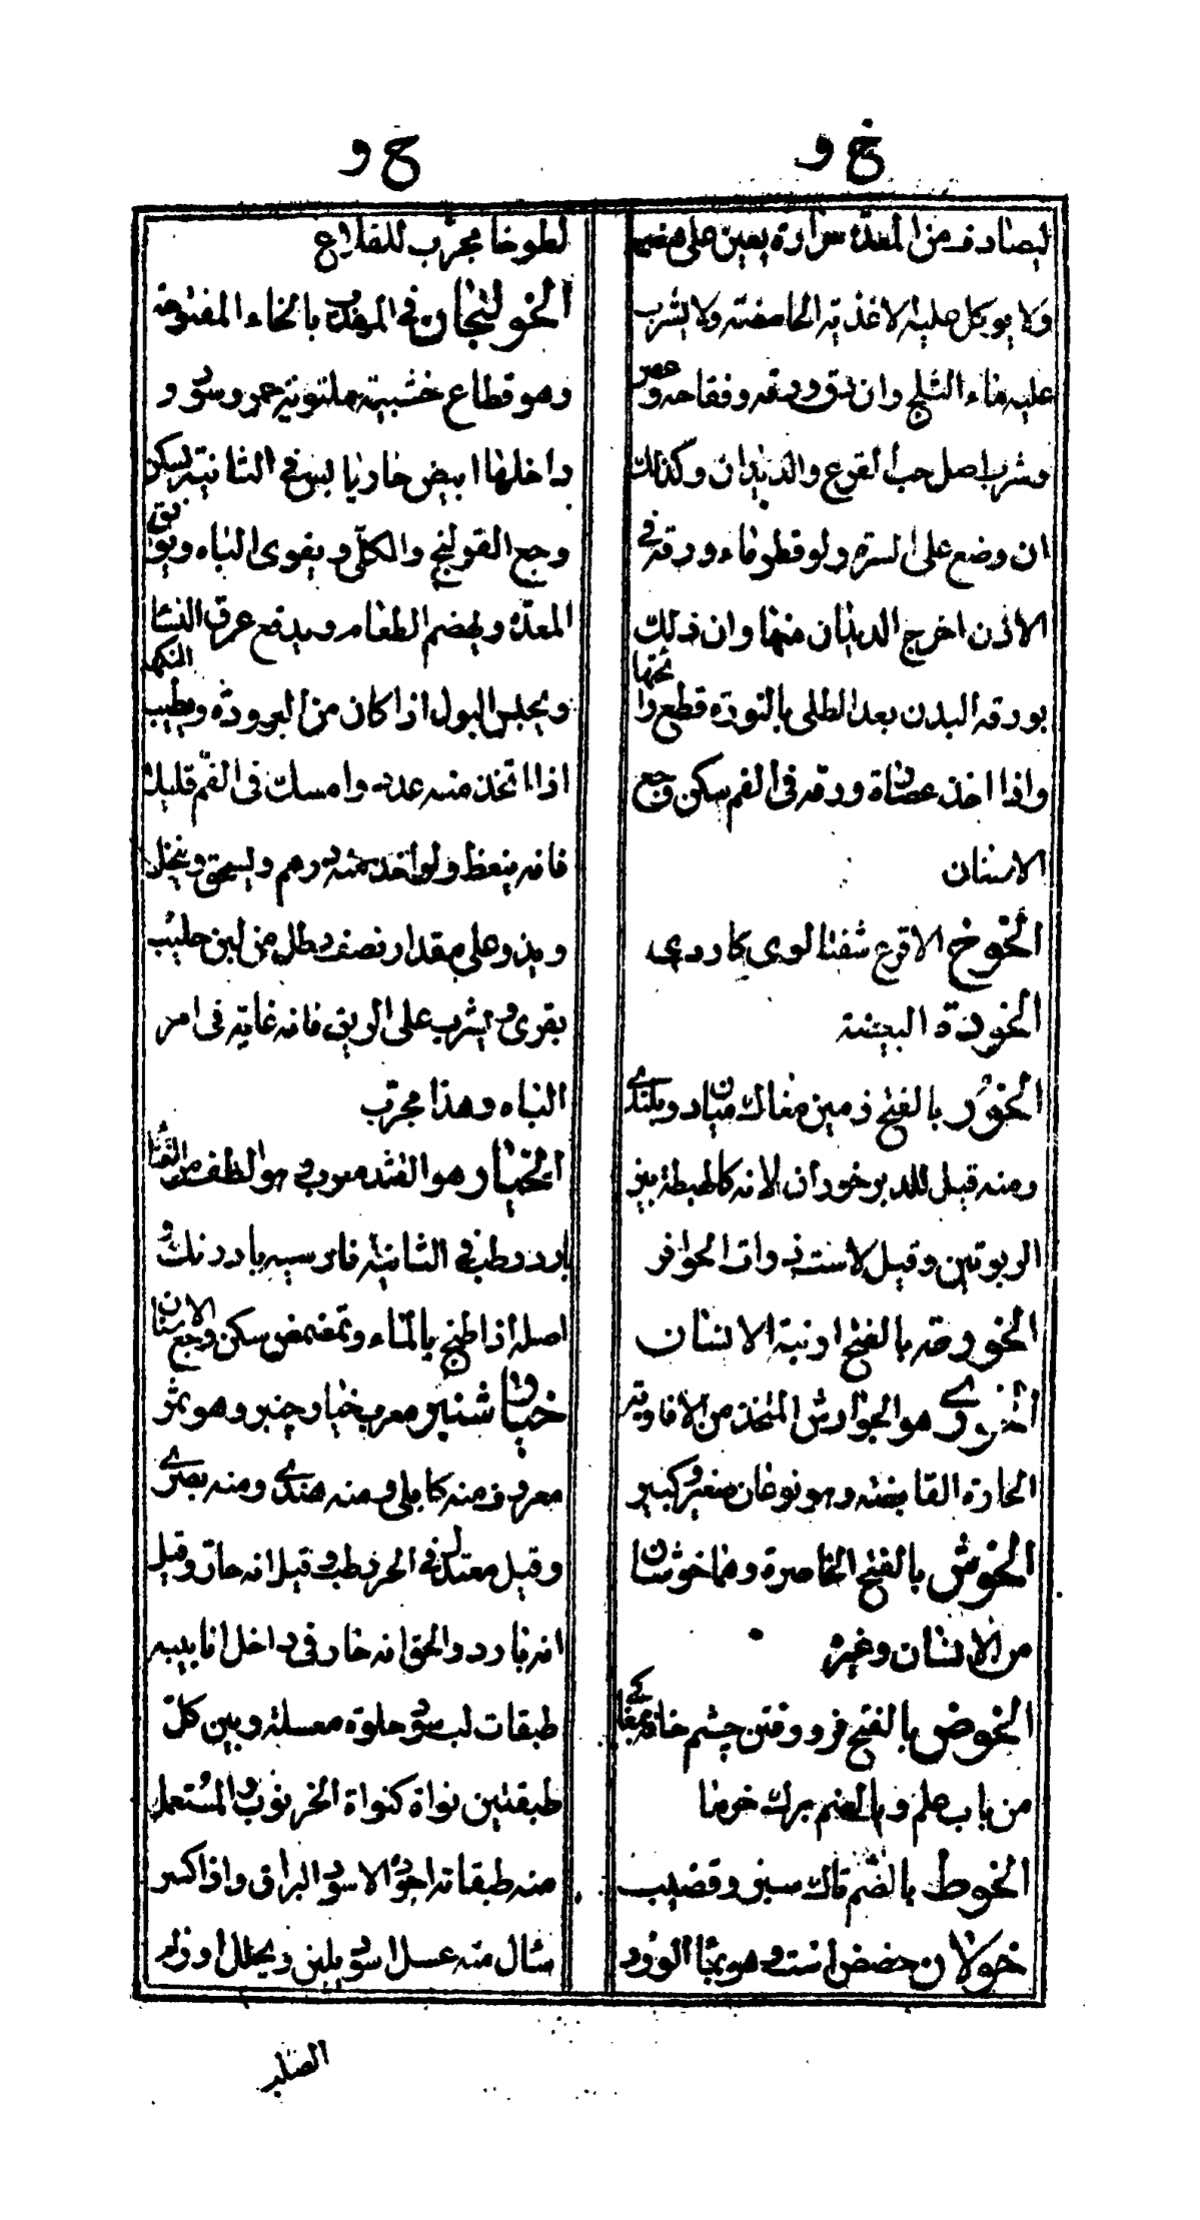 خ و
ليصادف من المعدة حرارة يعين على هضمها
ولا يوكل عليه الاغذية الحامضة ولا يشرب
عليه ماء الثلج وان دق ورقه وفقاحه وعصر
وشرب اصل حب القرع والديدان وكذلك
ان وضع على السرة ولو قطر ماء ورقه في
الاذن اخرج الديدان منها وان ذلك
بورقه البدن بعد الطلى بالنورة قطع رائحتها
واذا اخذ عصارة ورقه فى الفم سكن وجع
الاسنان
الخوخ الاقرع شفتالوى كاردى
الخوذة البيضة
الخور بالفتح زمين مغاك ميان دو بلندى
ومنه قيل للدبر خوران لانه كالهبطة بين
الربوتين وقيل لاست ذوات الحوافر
الخورمة بالفتح ارنبة الانسان
الخوزى هو الجوارش المتخذ من الافاويه
الحارة القابضة وهو نوعان صغير وكبير
الخوش بالفتح الخاصرة وهما خوشان
من الانسان وغيره
الخوض بالفتح فرو رفتن چشم خانه بمغاكى
من باب علم وبالضم برك خرما
الخوط بالضم تاك سبز وقضيب
خولان حضض است وهو بماء الورد
ح و
لطوخا مجرب للقلاع
الخولنجان فى المهذب بالخاء المفتوحة
وهو قطاع خشبية ملتوية حمر وسود و
داخلها ابيض حار يابس فى الثانية يسكن
وجع القولنج والكلى ويقوى الباه ويوافق
المعدة ويهضم الطعام ويدفع عرق النسا
ويحبس البول اذا كان من البرودة ويطيب النكهة
اذا اتخذ منه عدد وامسك فى الفم قليلا
فانه ينعظ ولو اتخذ منه درهم ويسحق وينخل
ويذر على مقدار نصف رطل من لبن حليب
بقرى ويشرب على الريق فانه غاية فى امر
الباه وهذا مجرب
الخيار هو القثد معرب هو الطف من القثاء
بارد رطب فى الثانية فارسيه بادرنك و
اصله اذا طبخ بالماء وتمضمض سكن وجع الاسنان
خيار شنبر معرب خيار چنبر وهو ثمر
معروف منه كابلى ومنه هندى ومنه بصرى
وقيل معتدل فى الحر رطب وقيل انه حار وقيل
انه بارد والحق انه حار فى داخل انابيبه
طبقات لب سود حلوة معسلة وبين كل
طبقتين نواة كنواة الخرنوب والمستعمل
منه طبقاته اجود الاسود البراق واذا كسر
سال منه عسل اسود يلين ويحلل اورام
الصلبة